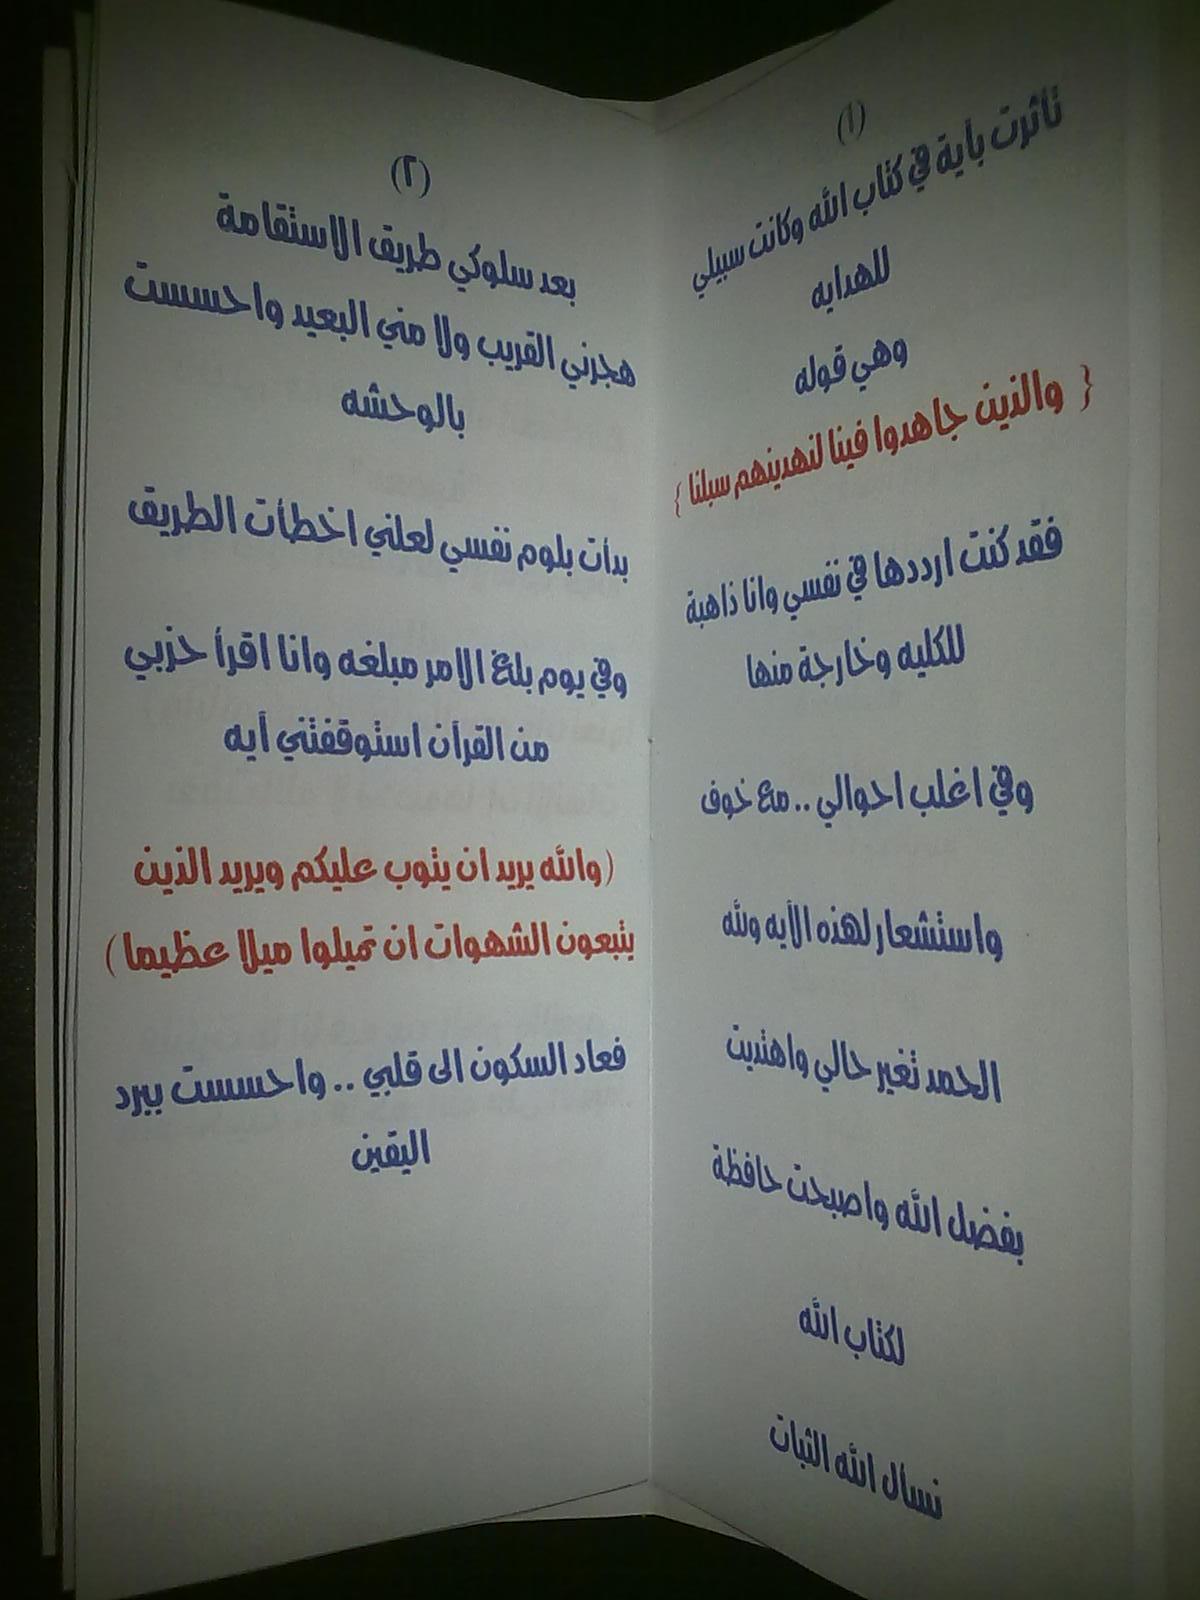 (١)
تأثرت بأية في كتاب الله وكانت سبيلي
للهدايه
وهي قوله
{ والذين جاهدوا فينا لنهدينهم سبلنا }
فقد كنت ارددها في نفسي وانا ذاهبة
للكليه وخارجة منها
وفي اغلب احوالي .. مع خوف
واستشعار لهذه الأيه ولله
الحمد تغير حالي واهتديت
بفضل الله واصبحت حافظة
لكتاب الله
نسأل الله الثبات
(٢)
بعد سلوكي طريق الاستقامة
هجرني القريب ولا مني البعيد واحسست
بالوحشه
بدأت بلوم نفسي لعلني اخطأت الطريق
وفي يوم بلغ الامر مبلغه وانا اقرأ حزبي
من القرأن استوقفتني أيه
(والله يريد ان يتوب عليكم ويريد الذين
يتبعون الشهوات ان تميلوا ميلا عظيما)
فعاد السكون الى قلبي .. واحسست ببرد
اليقين